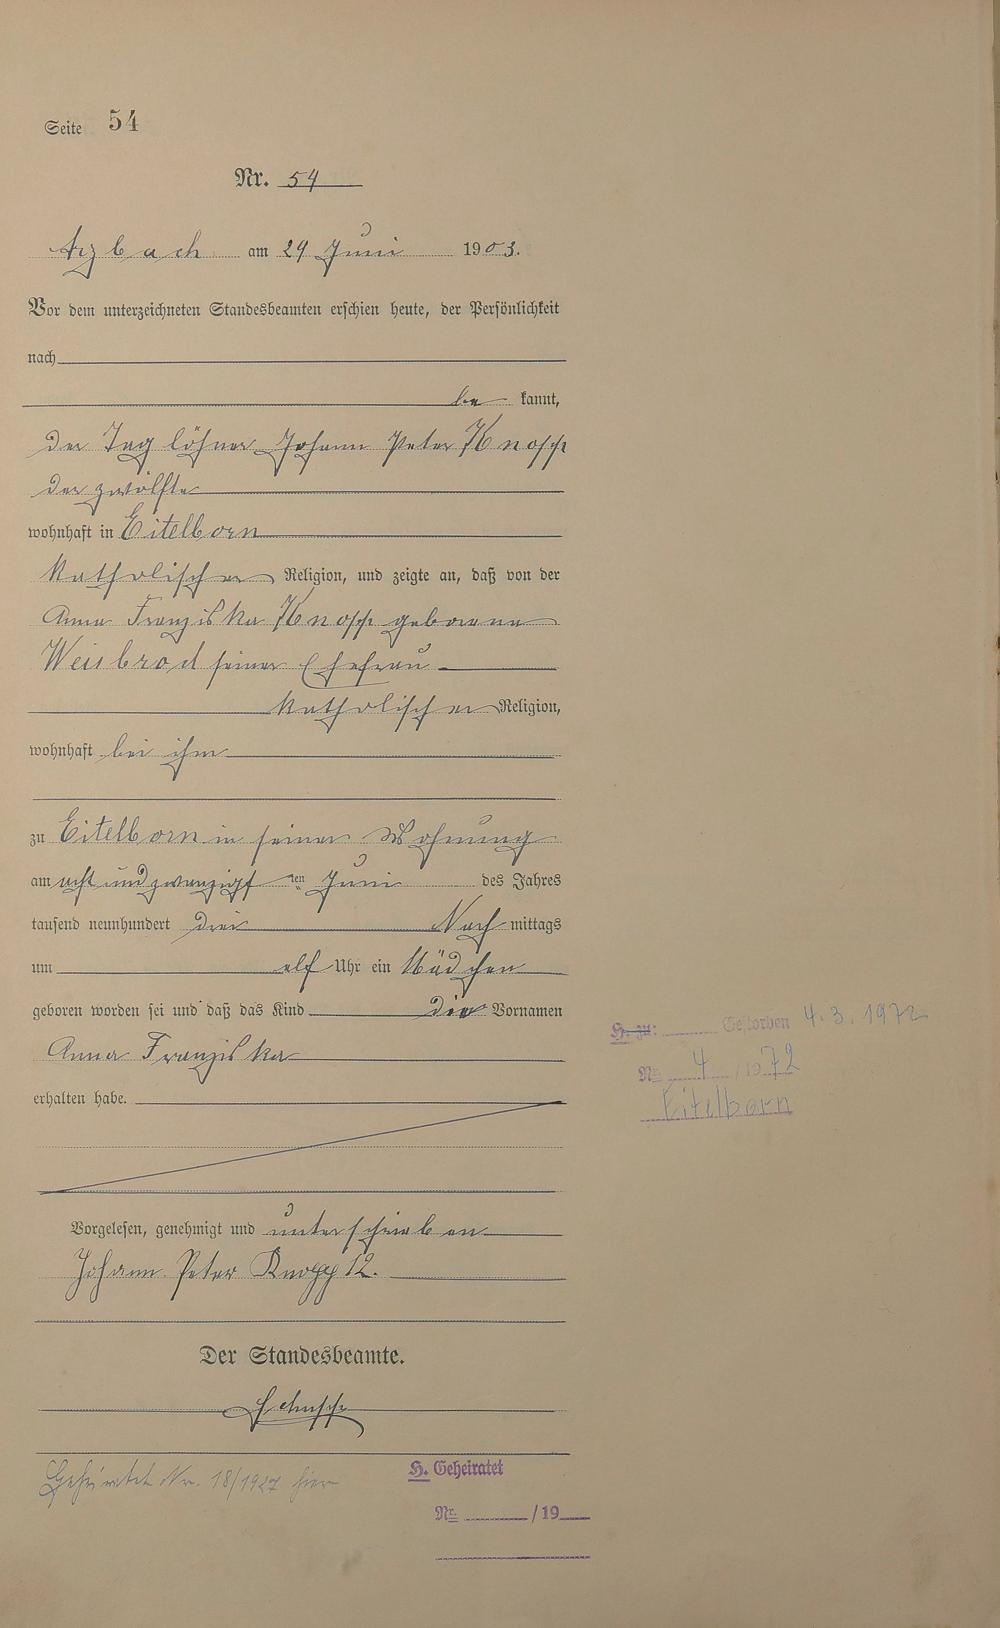 Seite 54
Nr. 54
Arzbach am 29 Juni 1903.
Vor dem unterzeichneten Standesbeamten erschien heute, der Persönlichkeit
nach
be kannt,
der Tag löhner Johann Peter Knopp
der zwölfte
wohnhaft in Eitelborn
katholischer Religion, und zeigte an, daß von der
Anna Franziska Knopp geborene
Weisbrod seiner Ehefrau
katholischer Religion,
wohnhaft bei ihm
zu Eitelborn in seiner Wohnung
am acht und zwanzigst ten Juni des Jahres
tausend neunhundert drei Nach mittags
um elf Uhr ein Mädchen
geboren worden sei und daß das Kind die Vornamen
Anna Franziska
erhalten habe.
Vorgelesen, genehmigt und unterschrieben
Johann Peter Knopp 12.
Der Standesbeamte.
Geheiratet Nr. 18/1927 hier
H. Geheiratet
Nr. /19
H. zu: Gestorben 4.3.1972
Nr. 4 /1972
Eitelborn